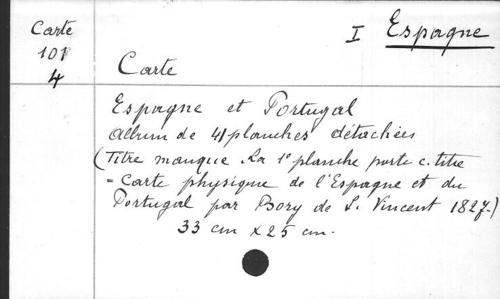 Carte
101
4
I Espagne
Carte
Espagne et Portugal
album de 41 planches détachées
(Titre manque. La 1e planche porte c. titre
= Carte physique de l'Espagne et du
Portugal par Bory de S. Vincent 1827.)
33 cm x 25 cm.